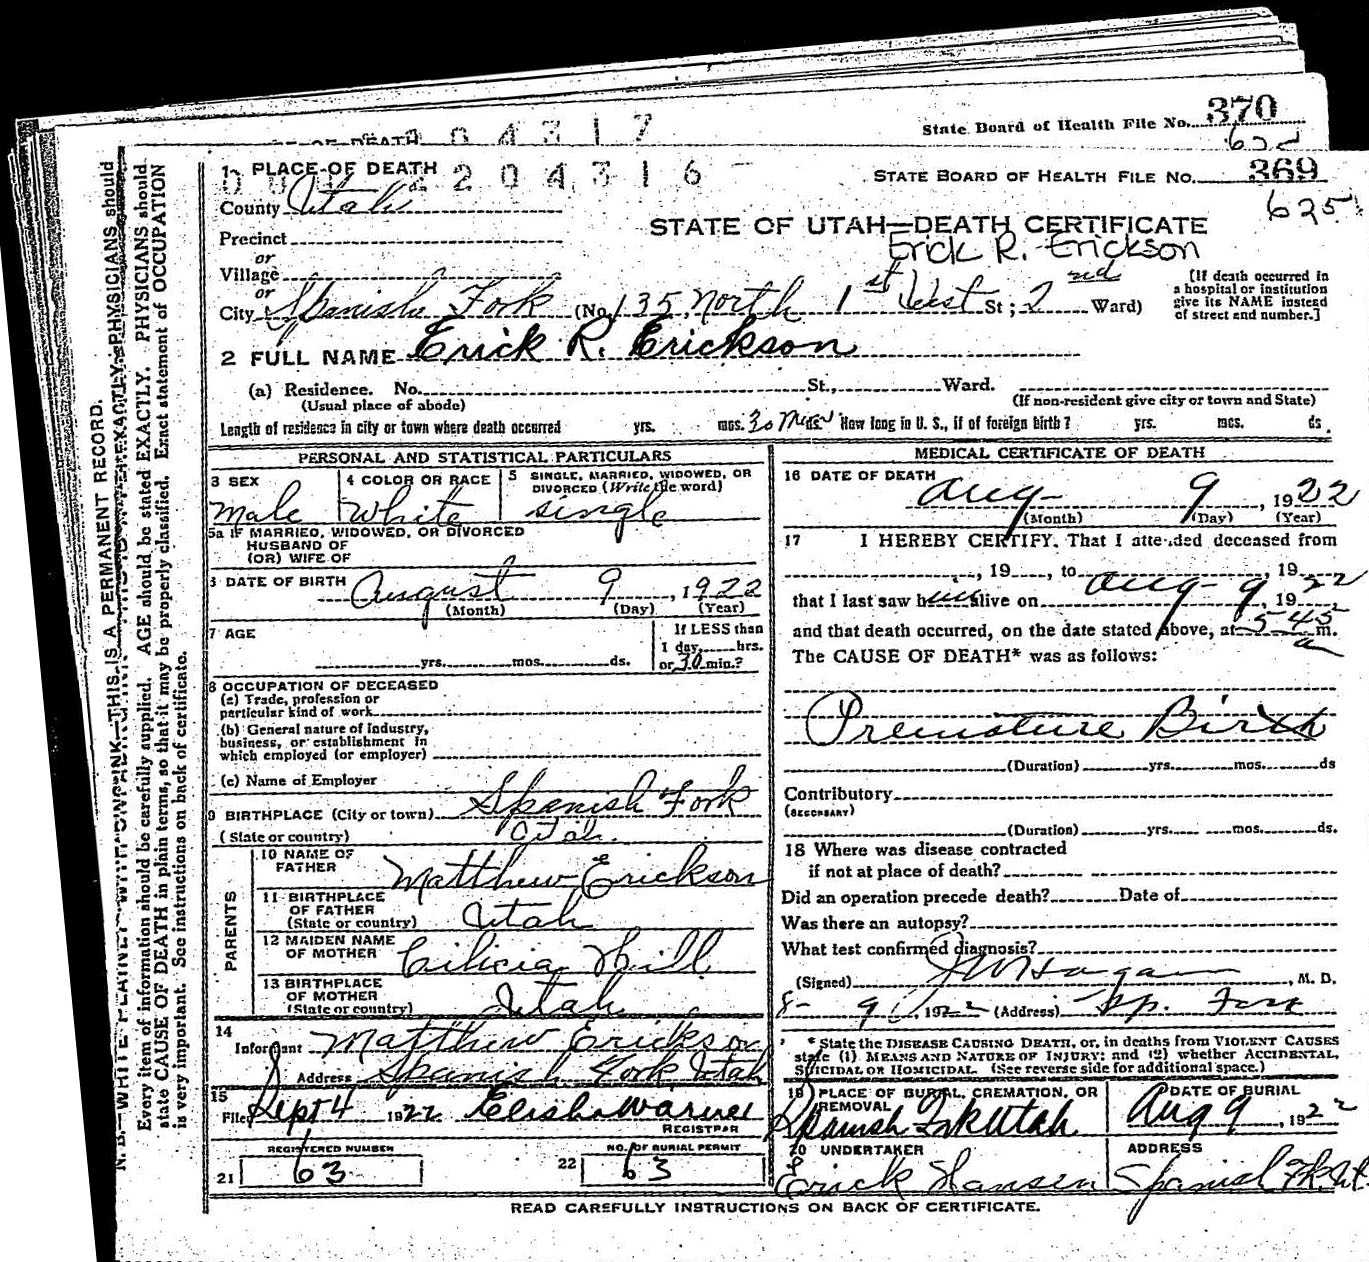 370
State Board of Health File No.
204317
625
1 PLACE OF DEATH
204316
STATE BOARD OF HEALTH FILE No. 369
625
County Utah
STATE OF UTAH—DEATH CERTIFICATE
Precinct
Erick R. Erickson
or
Village
or
City Spanish Fork (No. 135 North 1st West St; 2nd Ward)
[If death occurred in
a hospital or institution
give its NAME instead
of street and number.]
2 FULL NAME Erick R. Erickson
(a) Residence. No. St., Ward.
(Usual place of abode)
(If non-resident give city or town and State)
Length of residence in city or town where death occurred yrs. mos. 30 Mins How long in U. S., if of foreign birth? yrs. mos. ds.
PERSONAL AND STATISTICAL PARTICULARS
3 SEX
Male
4 COLOR OR RACE
White
5 SINGLE, MARRIED, WIDOWED, OR
DIVORCED (Write the word)
single
5a IF MARRIED, WIDOWED, OR DIVORCED
HUSBAND OF
(OR) WIFE OF
6 DATE OF BIRTH August 9, 1922
(Month) (Day) (Year)
7 AGE
yrs. mos. ds.
If LESS than
1 day, hrs.
or 30 min.?
8 OCCUPATION OF DECEASED
(a) Trade, profession or
particular kind of work
(b) General nature of industry,
business, or establishment in
which employed (or employer)
(c) Name of Employer
9 BIRTHPLACE (City or town) Spanish Fork
(State or country) Utah
PARENTS
10 NAME OF
FATHER Matthew Erickson
11 BIRTHPLACE
OF FATHER
(State or country) Utah
12 MAIDEN NAME
OF MOTHER Cilicia Hill
13 BIRTHPLACE
OF MOTHER
(State or country) Utah
14
Informant Matthew Erickson
Address Spanish Fork, Utah
15
Filed Sept 4 1922 Elisha Warner
REGISTRAR
REGISTERED NUMBER
21 63
NO. OF BURIAL PERMIT
22 63
MEDICAL CERTIFICATE OF DEATH
16 DATE OF DEATH
Aug 9, 1922
(Month) (Day) (Year)
17 I HEREBY CERTIFY, That I attended deceased from
, 19 , to Aug 9, 1922
that I last saw him alive on , 19
and that death occurred, on the date stated above, at 5-45 a m.
The CAUSE OF DEATH* was as follows:
Premature Birth
(Duration) yrs. mos. ds
Contributory
(SECONDARY)
(Duration) yrs. mos. ds.
18 Where was disease contracted
if not at place of death?
Did an operation precede death? Date of
Was there an autopsy?
What test confirmed diagnosis?
(Signed) J W Hagan, M. D.
8- 9, 1922 (Address) Sp. Fork
*State the DISEASE CAUSING DEATH, or, in deaths from VIOLENT CAUSES
state (1) MEANS AND NATURE OF INJURY; and (2) whether ACCIDENTAL,
SUICIDAL OR HOMICIDAL. (See reverse side for additional space.)
19 PLACE OF BURIAL, CREMATION, OR
REMOVAL
Spanish Fk Utah
DATE OF BURIAL
Aug 9, 1922
20 UNDERTAKER
Erick Hansen
ADDRESS
Spanish Fk. Ut.
READ CAREFULLY INSTRUCTIONS ON BACK OF CERTIFICATE.
N. B.—WRITE PLAINLY WITH UNFADING INK—THIS IS A PERMANENT RECORD.
Every item of information should be carefully supplied. AGE should be stated EXACTLY. PHYSICIANS should
state CAUSE OF DEATH in plain terms, so that it may be properly classified. Exact statement of OCCUPATION
is very important. See instructions on back of certificate.